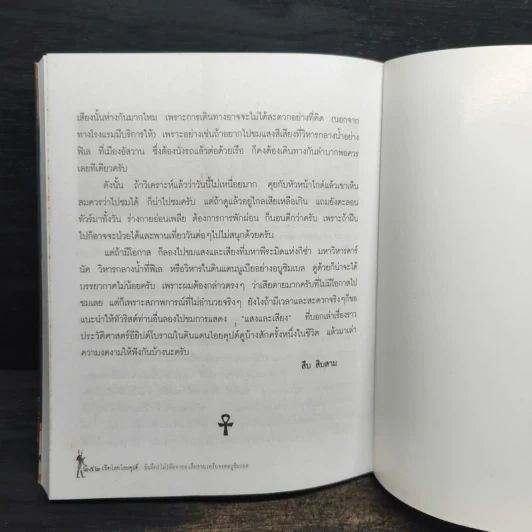 เสียงนั้นห่างกันมากไหม เพราะการเดินทางอาจจะไม่ได้สะดวกอย่างที่คิด (นอกจาก
ทางโรงแรมมีบริการให้) เพราะอย่างเช่นถ้าอยากไปชมแสงสีเสียงที่วิหารกลางน้ำอย่าง
ฟิเล ที่เมืองอัสวาน ซึ่งต้องนั่งรถแล้วต่อด้วยเรือ ก็คงต้องเดินทางกันลำบากพอควร
เลยทีเดียวครับ
ดังนั้น ถ้าวิเคราะห์แล้วว่าวันนี้ไม่เหนื่อยมาก คุยกับหัวหน้าไกด์แล้วเขาเห็น
สมควรว่าไปชมได้ ก็น่าไปชมครับ แต่ถ้าดูแล้วอยู่ไกลเสียเหลือเกิน แถมยังตะลอน
ทัวร์มาทั้งวัน ร่างกายอ่อนเพลีย ต้องการการพักผ่อน ก็นอนดีกว่าครับ เพราะถ้าฝืน
ไปก็อาจจะป่วยได้และพานเที่ยววันต่อๆไปไม่สนุกด้วยครับ
แต่ถ้ามีโอกาส ก็ลองไปชมแสงและเสียงที่มหาพีระมิดแห่งกิซ่า มหาวิหารคาร์
นัค วิหารกลางน้ำที่ฟิเล หรือวิหารในดินแดนนูเบียอย่างอบูซิมเบล ดูด้วยก็น่าจะได้
บรรยากาศไม่น้อยครับ เพราะผมต้องกล่าวตรงๆ ว่าเสียดายมากครับที่ไม่มีโอกาสไป
ชมเลย แต่ก็เพราะสภาพการณ์ที่ไม่อำนวยจริงๆ ยังไงถ้ามีเวลาและสะดวกจริงๆก็ขอ
แนะนำให้ทัวริสต์ท่านอื่นลองไปชมการแสดง "แสงและเสียง" ที่บอกเล่าเรื่องราว
ประวัติศาสตร์อียิปต์โบราณในดินแดนไอยคุปต์ดูบ้างสักครั้งหนึ่งในชีวิต แล้วมาเล่า
ความงดงามให้ฟังกันบ้างนะครับ
สืบ สิบสาม
๒๕๒ เปิดโลกไอยคุปต์